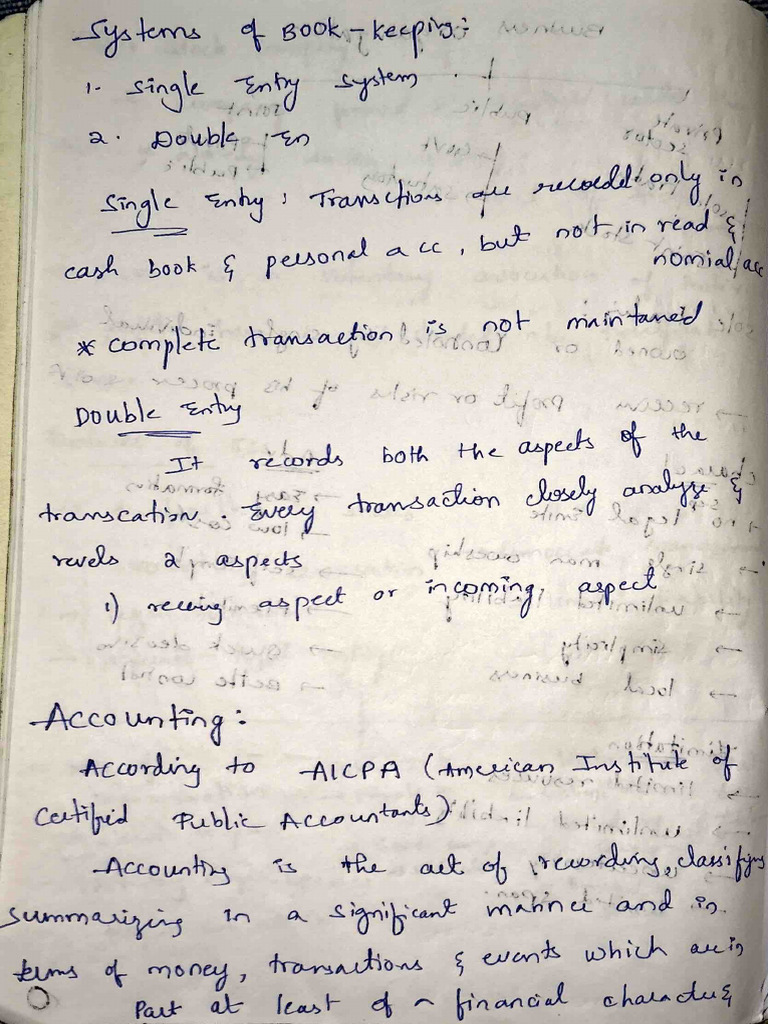 Systems of Book-keeping:
1. Single Entry System
2. Double En
Single Entry: Transctions are recorded only in
cash book & personal acc, but not in read &
nomial acc
* complete transaction is not maintaned
Double Entry
It records both the aspects of the
transcation. Every transaction closely analyze &
revels 2 aspects
1) receving aspect or incoming aspect
Accounting:
According to AICPA (American Institute of
Certified Public Accountants):
Accounting is the act of recording, classifying
summarizing in a significant manner and in
terms of money, transactions & events which are in
Part at least of a financial character &